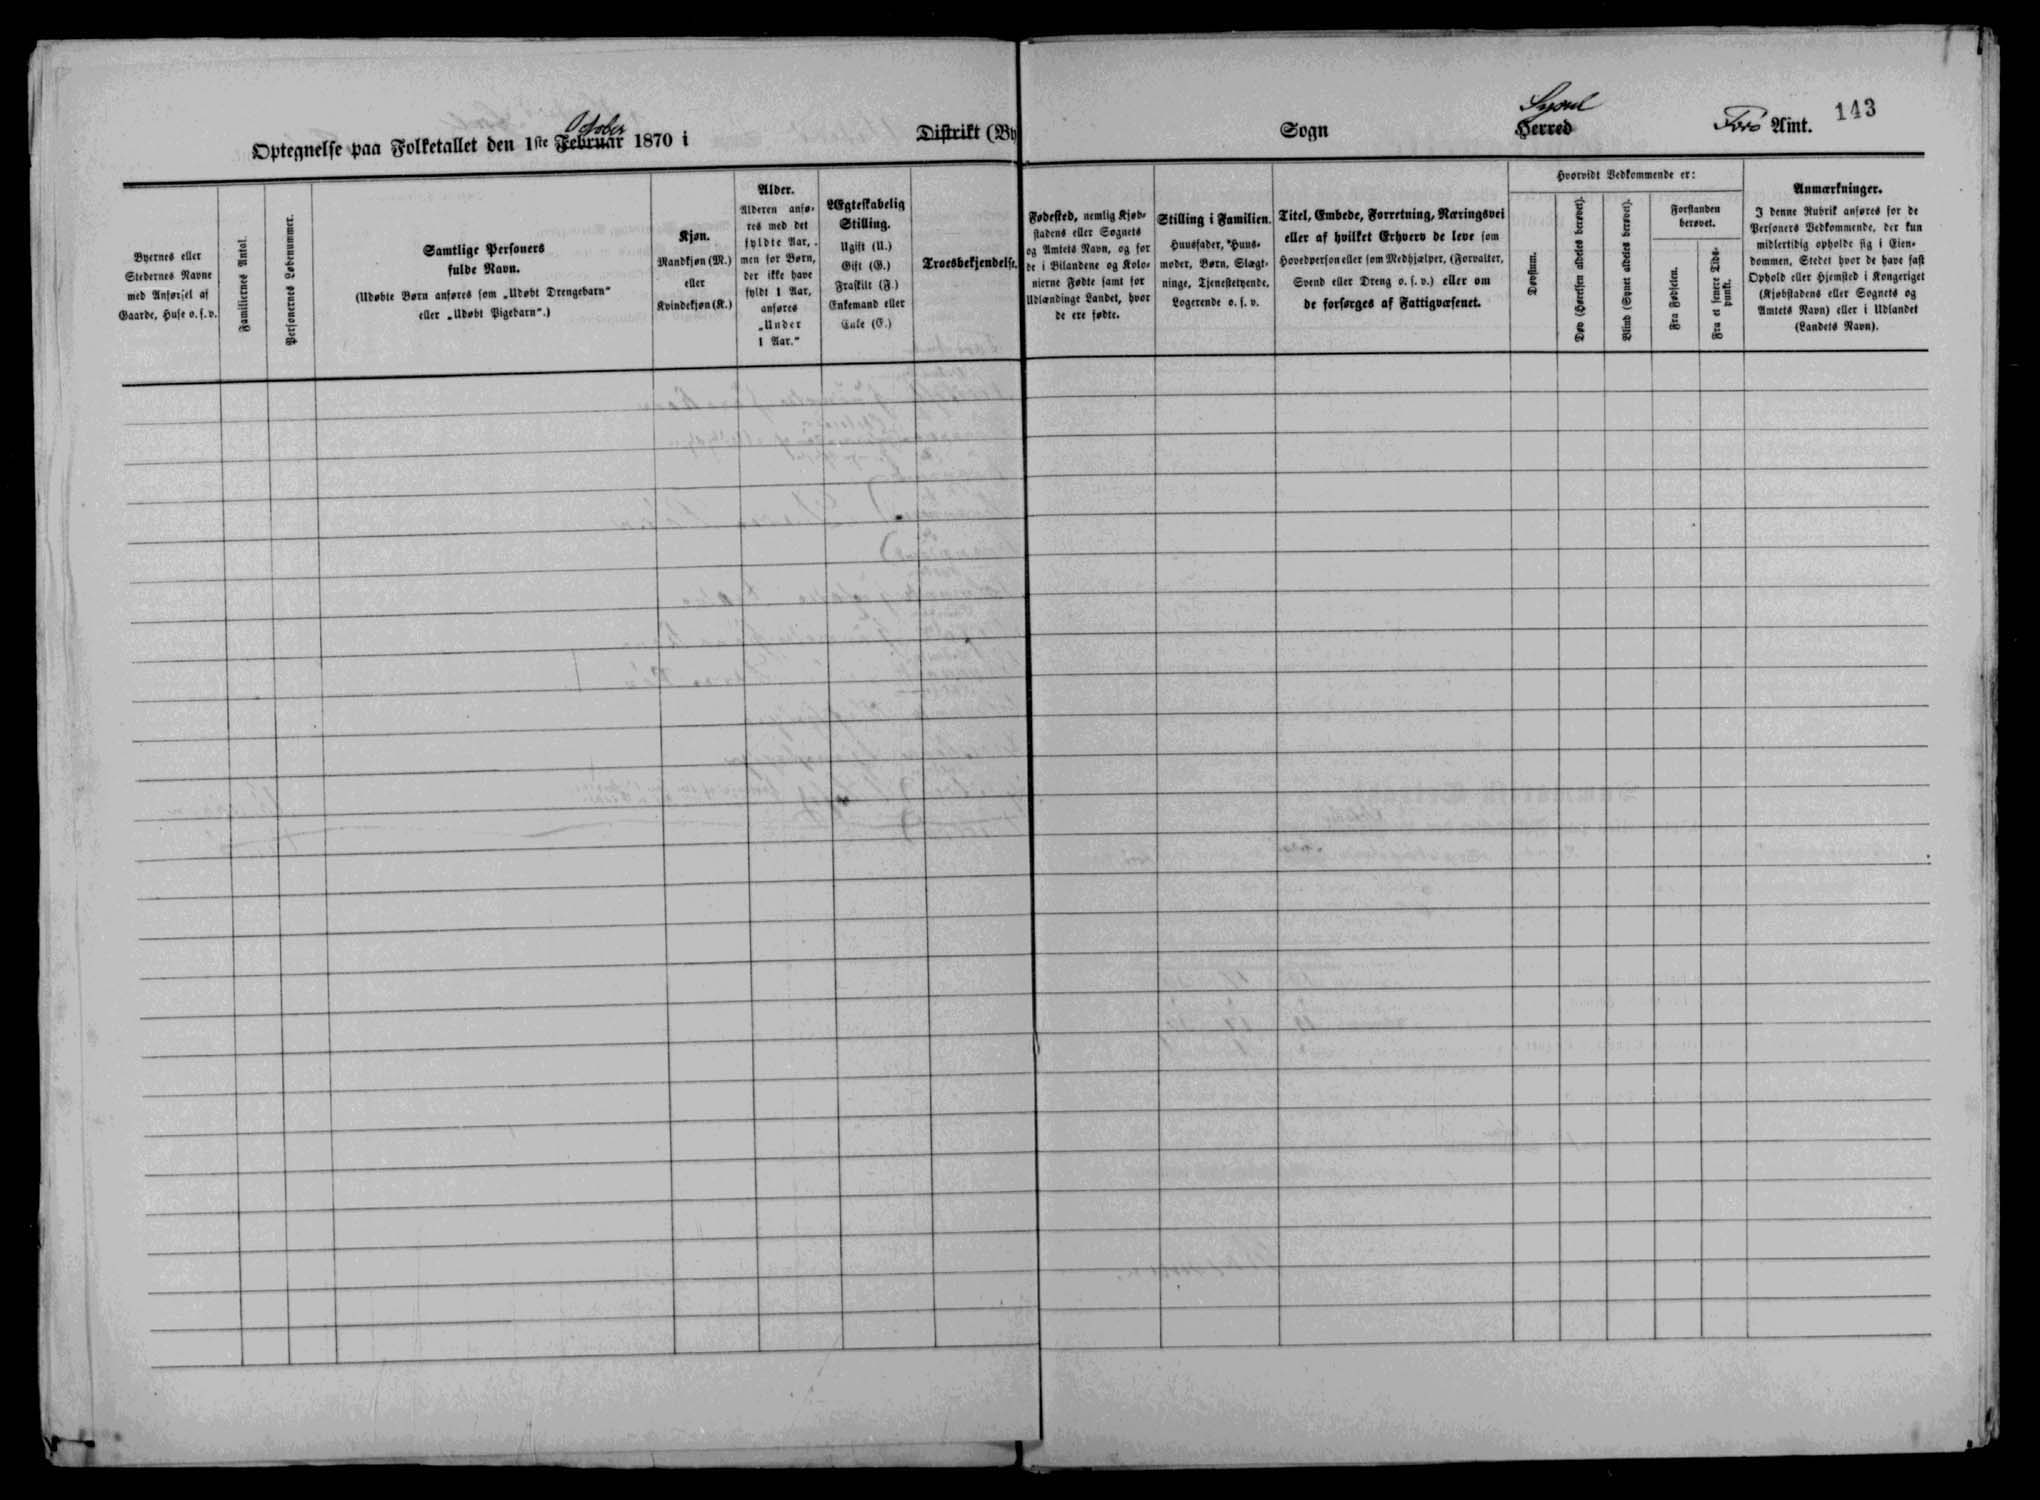 Optegnelse paa Folketallet den 1ste Februar 1870 i
October
Distrikt (By
Sogn
Syssel
Herred
Færø Amt.
143
Byernes eller
Stedernes Navne
med Anførsel af
Gaarde, Huse o. s. v.
Familiernes Antal.
Personernes Løbenummer.
Samtlige Personers
fulde Navn.
(Udøbte Børn anføres som „Udøbt Drengebarn"
eller „Udøbt Pigebarn".)
Kjøn.
Mandkjøn (M.)
eller
Kvindekjøn (K.)
Alder.
Alderen anfø-
res med det
fyldte Aar,
men for Børn,
der ikke have
fyldt 1 Aar,
anføres
„Under
1 Aar."
Ægteskabelig
Stilling.
Ugift (U.)
Gift (G.)
Fraskilt (F.)
Enkemand eller
Enke (E.)
Troesbekjendelse.
Fødested, nemlig Kjøb-
stadens eller Sognets
og Amtets Navn, og for
de i Bilandene og Kolo-
nierne Fødte samt for
Udlændinge Landet, hvor
de ere fødte.
Stilling i Familien.
Huusfader, Huus-
moder, Børn, Slægt-
ninge, Tjenestetyende,
Logerende o. s. v.
Titel, Embede, Forretning, Næringsvei
eller af hvilket Erhverv de leve som
Hovedperson eller som Medhjælper, (Forvalter,
Svend eller Dreng o. s. v.) eller om
de forsørges af Fattigvæsenet.
Hvorvidt Vedkommende er:
Døvstum.
Døv (Hørelsen aldeles berøvet).
Blind (Synet aldeles berøvet).
Forstanden
berøvet.
Fra Fødselen.
Fra et senere Tids-
punkt.
Anmærkninger.
I denne Rubrik anføres for de
Personers Vedkommende, der kun
midlertidig opholde sig i Eien-
dommen, Stedet hvor de have fast
Ophold eller Hjemsted i Kongeriget
(Kjøbstadens eller Sognets og
Amtets Navn) eller i Udlandet
(Landets Navn).